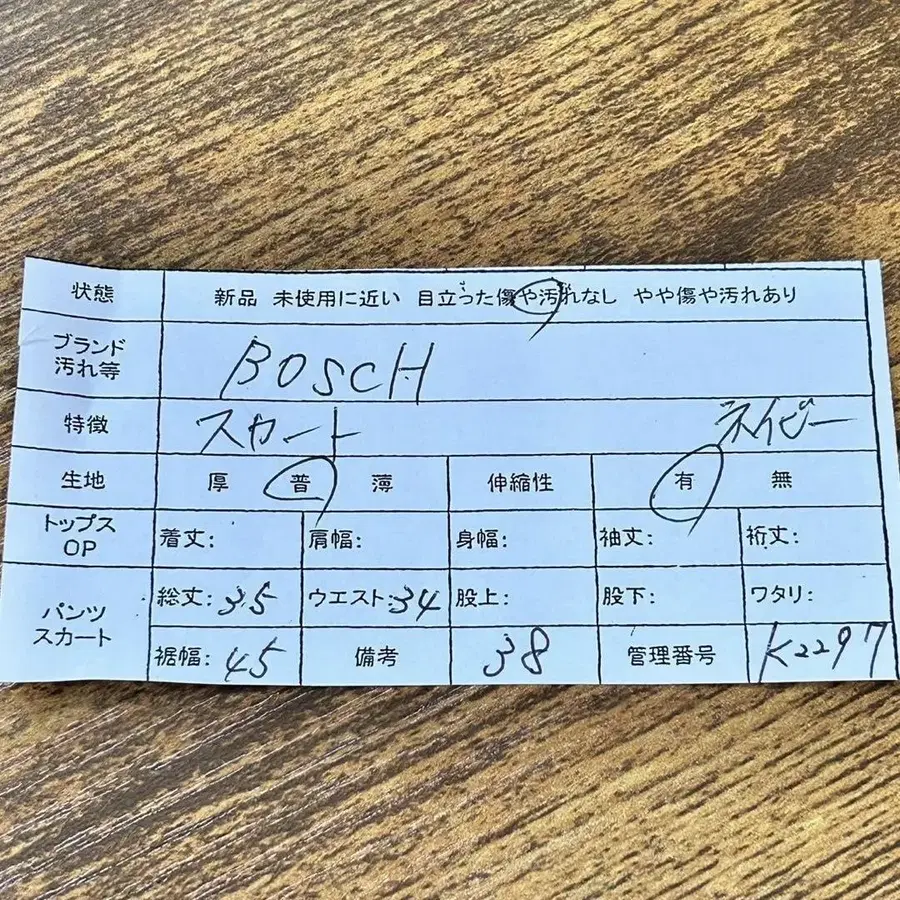 状態 新品 未使用に近い 目立った傷や汚れなし やや傷や汚れあり
ブランド
汚れ等
BOSCH
特徴 スカート ネイビー
生地 厚 普 薄 伸縮性 有 無
トップス
OP
着丈: 肩幅: 身幅: 袖丈: 裄丈:
パンツ
スカート
総丈:35 ウエスト:34 股上: 股下: ワタリ:
裾幅:45 備考 38 管理番号 K2297